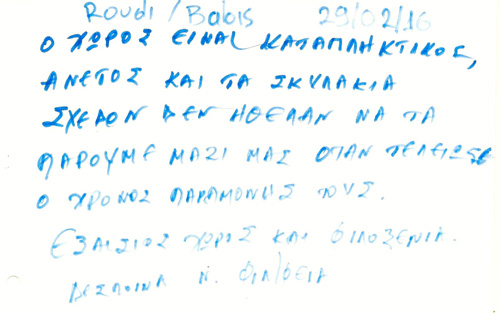 Roudi / Babis 29/02/16
Ο ΧΩΡΟΣ ΕΙΝΑΙ ΚΑΤΑΠΛΗΚΤΙΚΟΣ,
ΑΝΕΤΟΣ ΚΑΙ ΤΑ ΣΚΥΛΑΚΙΑ
ΣΧΕΔΟΝ ΔΕΝ ΗΘΕΛΑΝ ΝΑ ΤΑ
ΠΑΡΟΥΜΕ ΜΑΖΙ ΜΑΣ ΟΤΑΝ ΤΕΛΕΙΩΣΕ
Ο ΧΡΟΝΟΣ ΠΑΡΑΜΟΝΗΣ ΤΟΥΣ.
ΕΞΑΙΣΙΟΣ ΧΩΡΟΣ ΚΑΙ ΦΙΛΟΞΕΝΙΑ.
ΔΕΣΠΟΙΝΑ Κ.